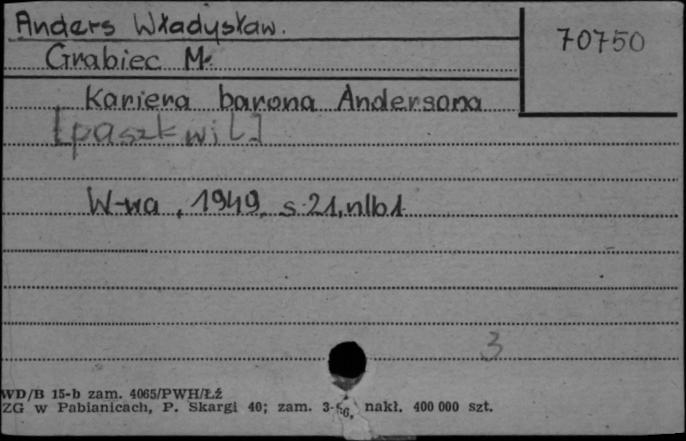 Anders Władysław.
70750
Grabiec M.
Kariera barona Andersona
[paszkwil]
W-wa, 1949, s. 21, nlb 1
3
WD/B 15-b zam. 4065/PWH/Łź
ZG w Pabianicach, P. Skargi 40; zam. nakł. 400 000 szt.